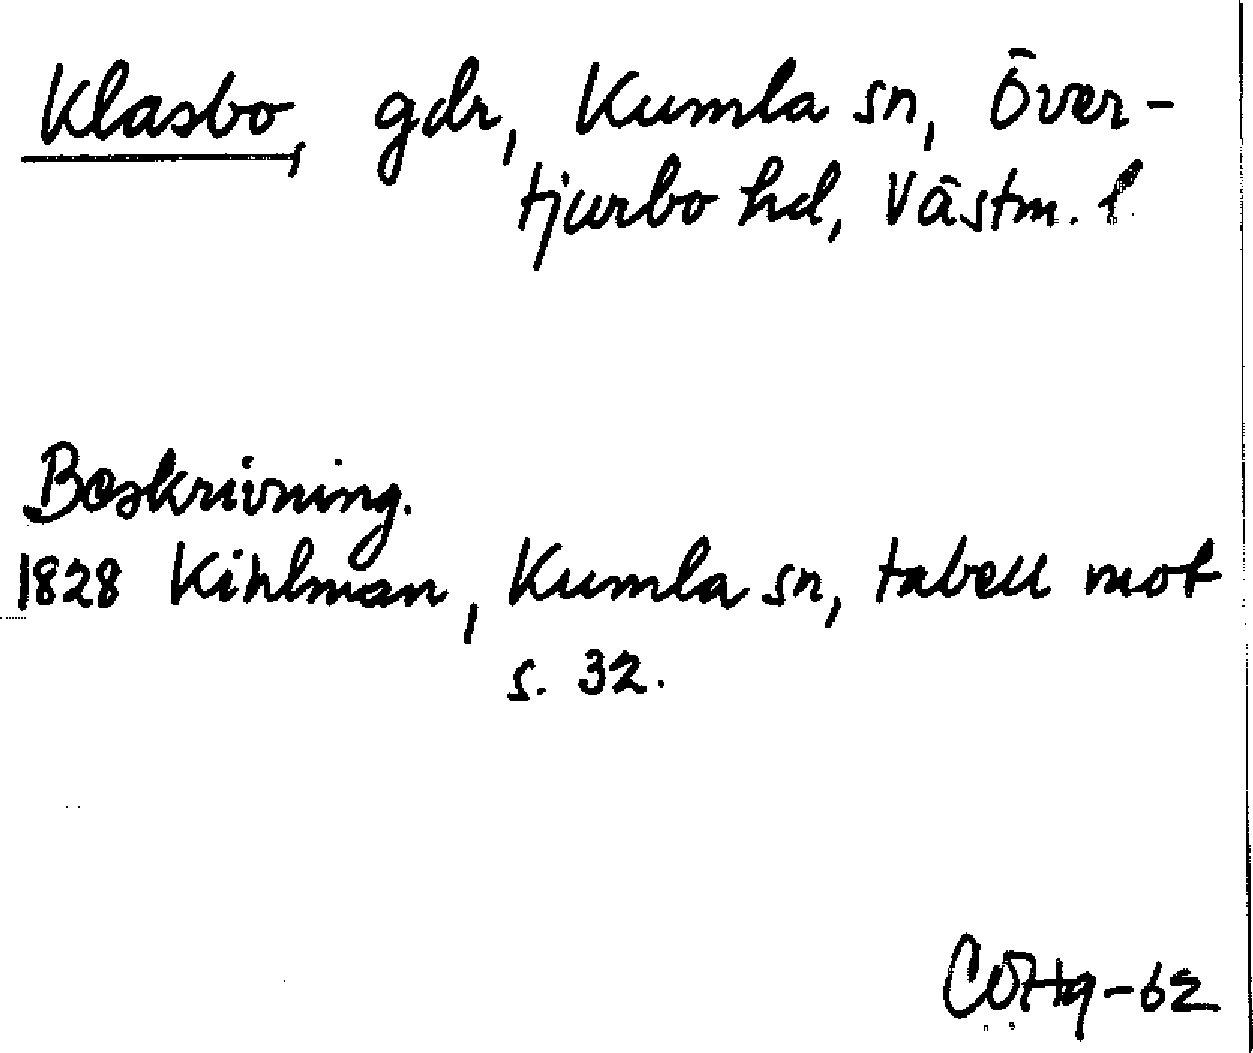 Klasbo, gdr, Kumla sn, Över-
tjurbo hd, Västm. l.
Beskrivning.
1828 Kihlman, Kumla sn, tabell mot
s. 32.
-62